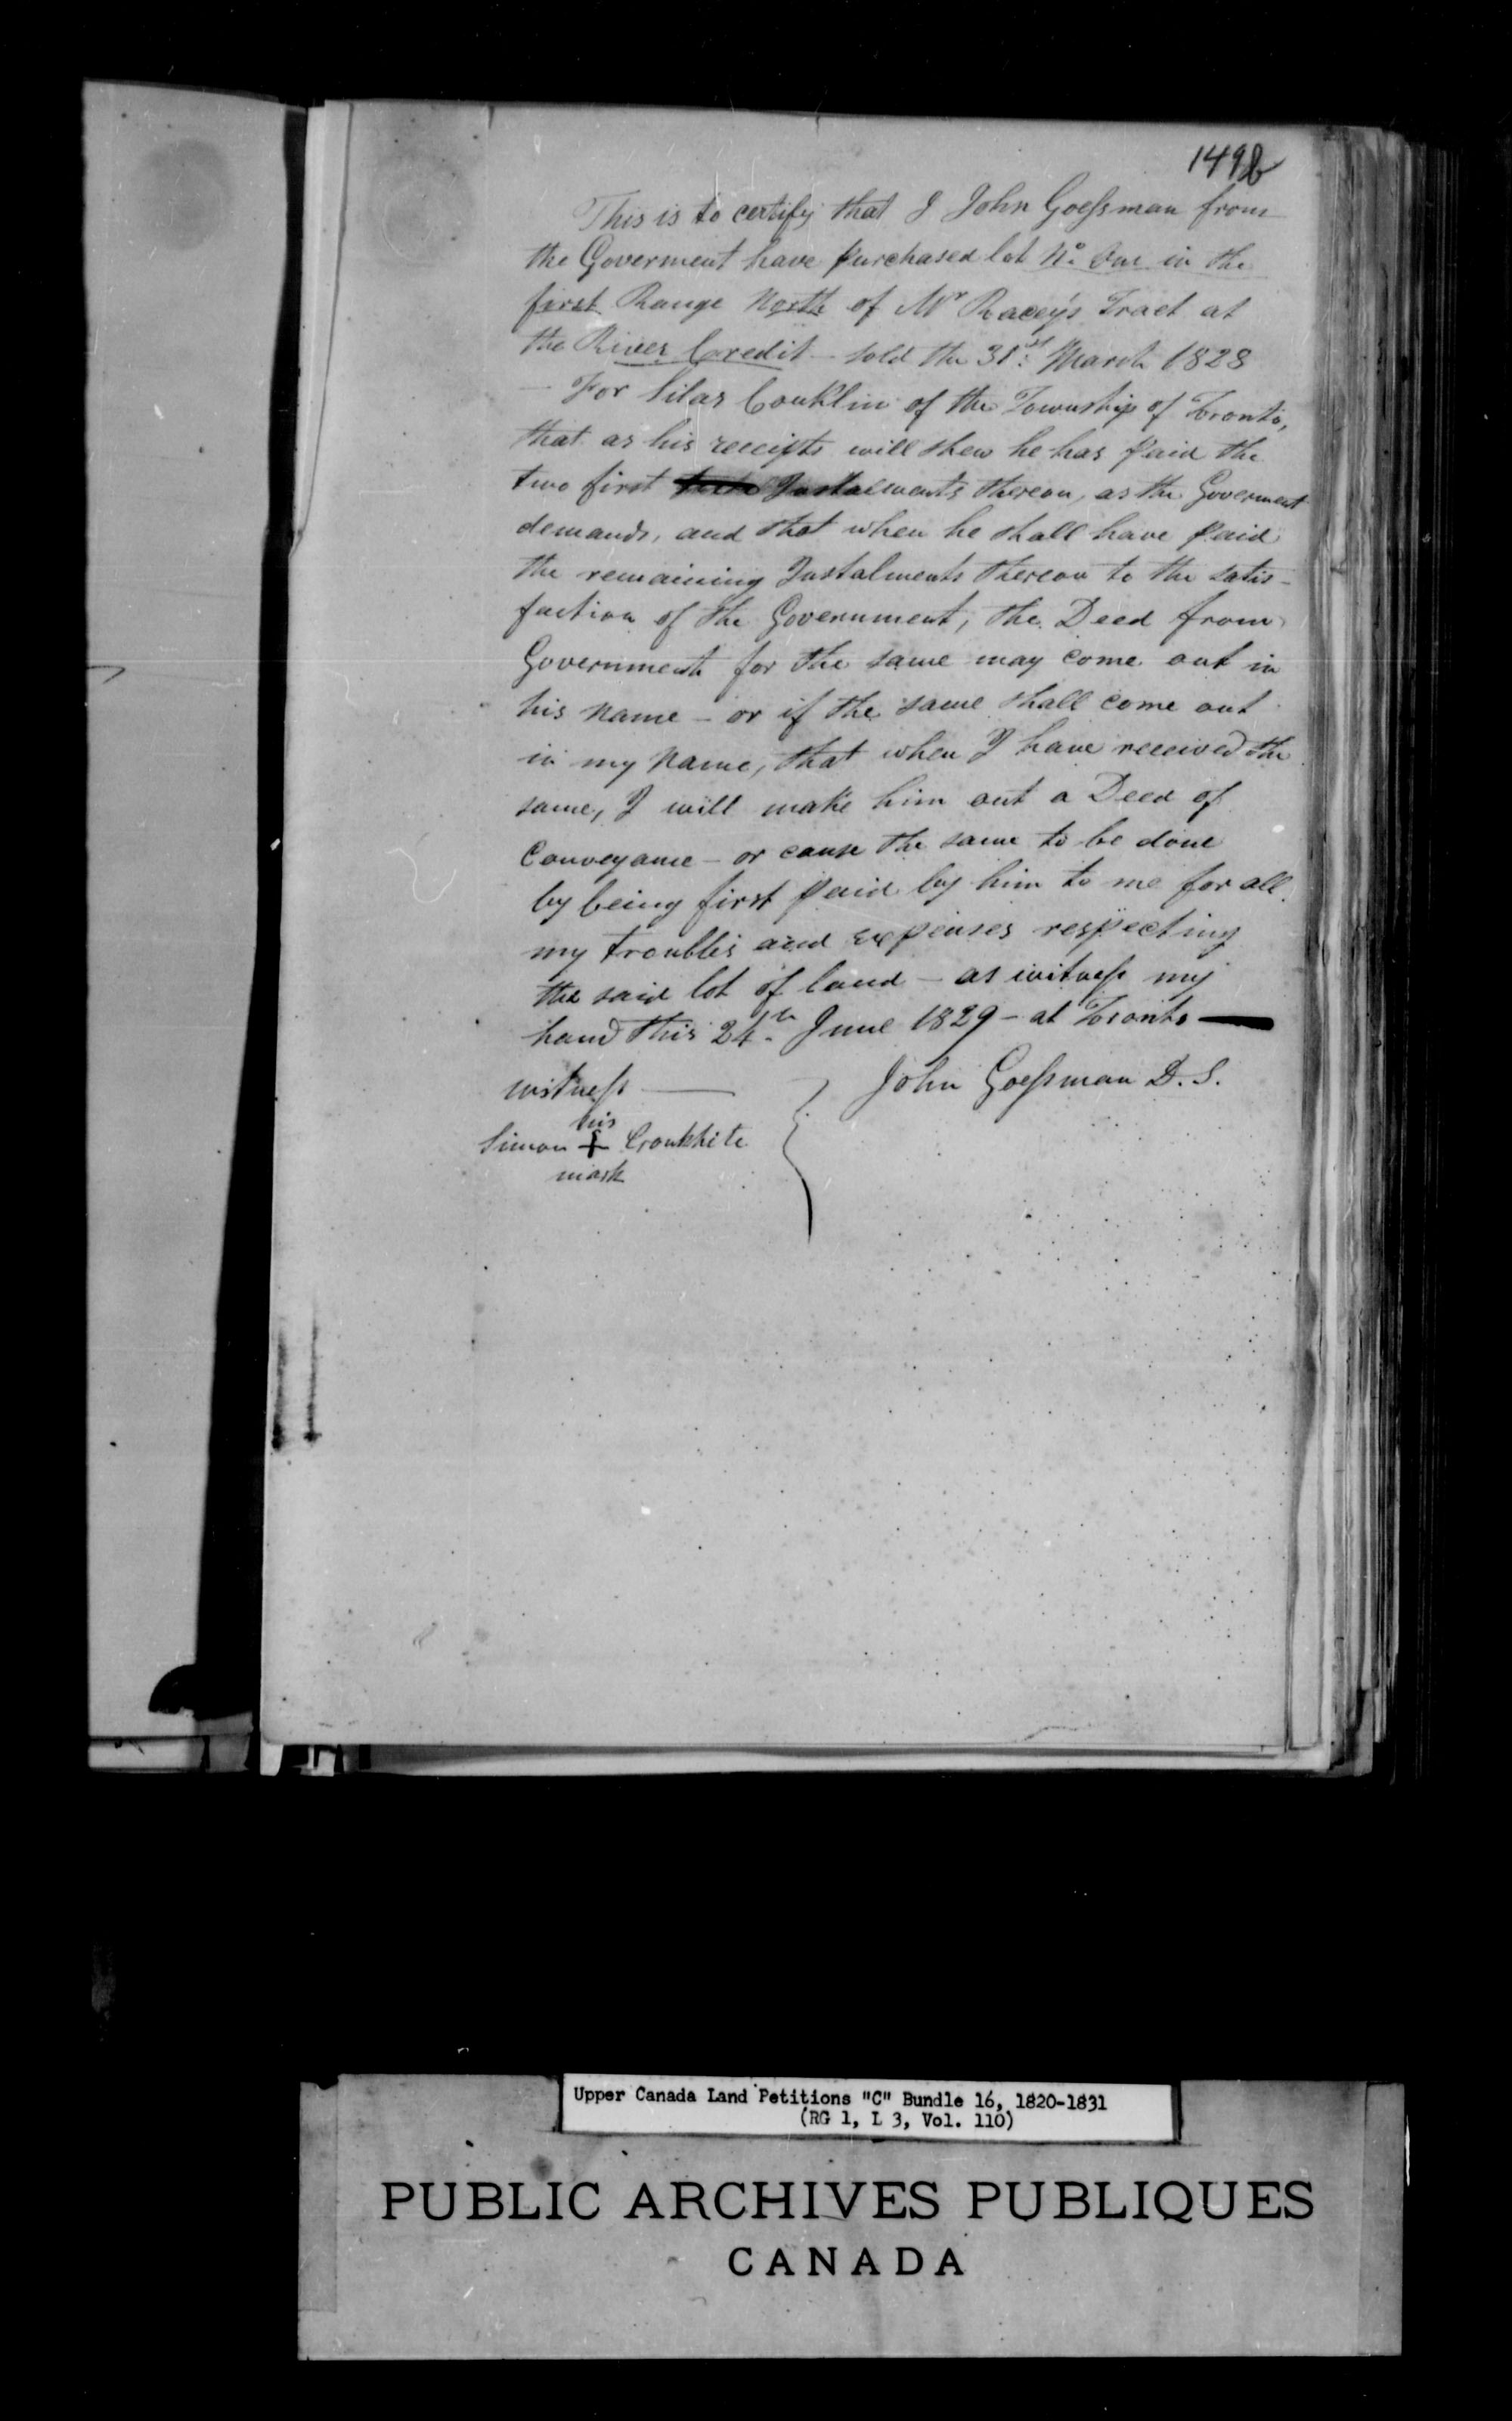 149b
This is to certify that I John Goeſsman from
the Goverment have purchased lot No. One in the
first Range North of Mr Racey's Tract at
the River Credit – sold the 31st. March 1828
– For Silas Conklin of the Township of Toronto,
that as his receipts will shew he has paid the
two first Instalments thereon, as the Goverment
demands, and that when he shall have paid
the remaining Instalments thereon to the satis-
faction of the Government, the Deed from
Government for the same may come out in
his name – or if the same shall come out
in my name, that when I have received the
same, I will make him out a Deed of
Conveyance – or cause the same to be done
by being first paid by him to me for all
my troubles and expenses respecting
the said lot of land – as witneſs my
hand this 24th. June 1829 – at Toronto —
witneſs — John Goeſsman D. S.
his
Simon + Cronkhite
mark
Upper Canada Land Petitions "C" Bundle 16, 1820-1831
(RG 1, L 3, Vol. 110)
PUBLIC ARCHIVES PUBLIQUES
CANADA